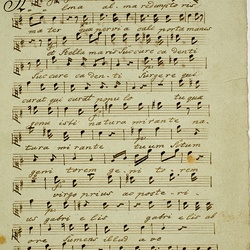 Alma al. ma redemptoris
mater que pervia celi porta manes
Stella maris Succurre cadenti
Succurre caden. ti Surgere qui
curat qui curat populo tu que
genuisti natura mirante na.
tura mirante tuum Sotum
geni torem ge. ni. to. rem
virgo prius ac poste. ri.
us gabri e lis gabri e lis ab
ore Sumens illud a ve